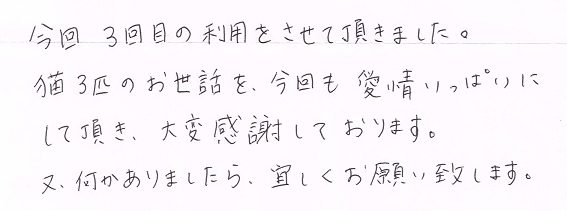 今回 3回目の利用をさせて頂きました。
猫3匹のお世話を、今回も 愛情いっぱいに
して頂き、大変感謝しております。
又、何かありましたら、宜しくお願い致します。